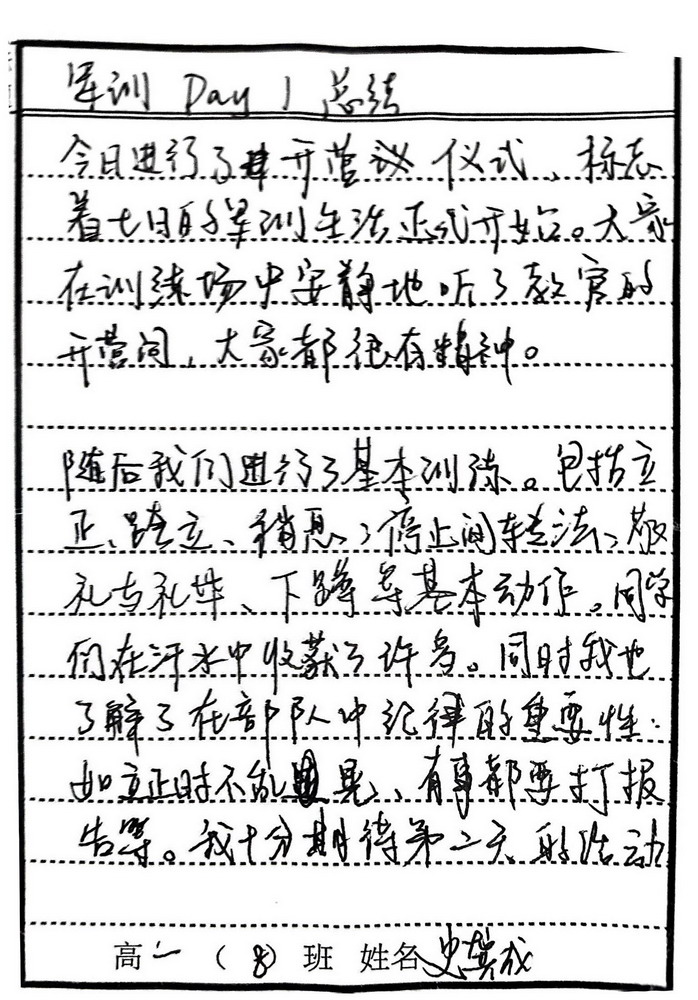 军训 Day 1 总结
今日进行了开营 仪式、标志
着七日的军训生活正式开始。大家
在训练场中安静地听了教官的
开营词，大家都很有精神。
随后我们进行了基本训练。包括立
正、跨立、稍息、停止间转法、敬
礼与礼毕、下蹲等基本动作。同学
们在汗水中收获了许多。同时我也
了解了在部队中纪律的重要性：
如立正时不乱晃、有事都要打报
告等。我十分期待第二天的活动
高一（8）班 姓名 史龚成